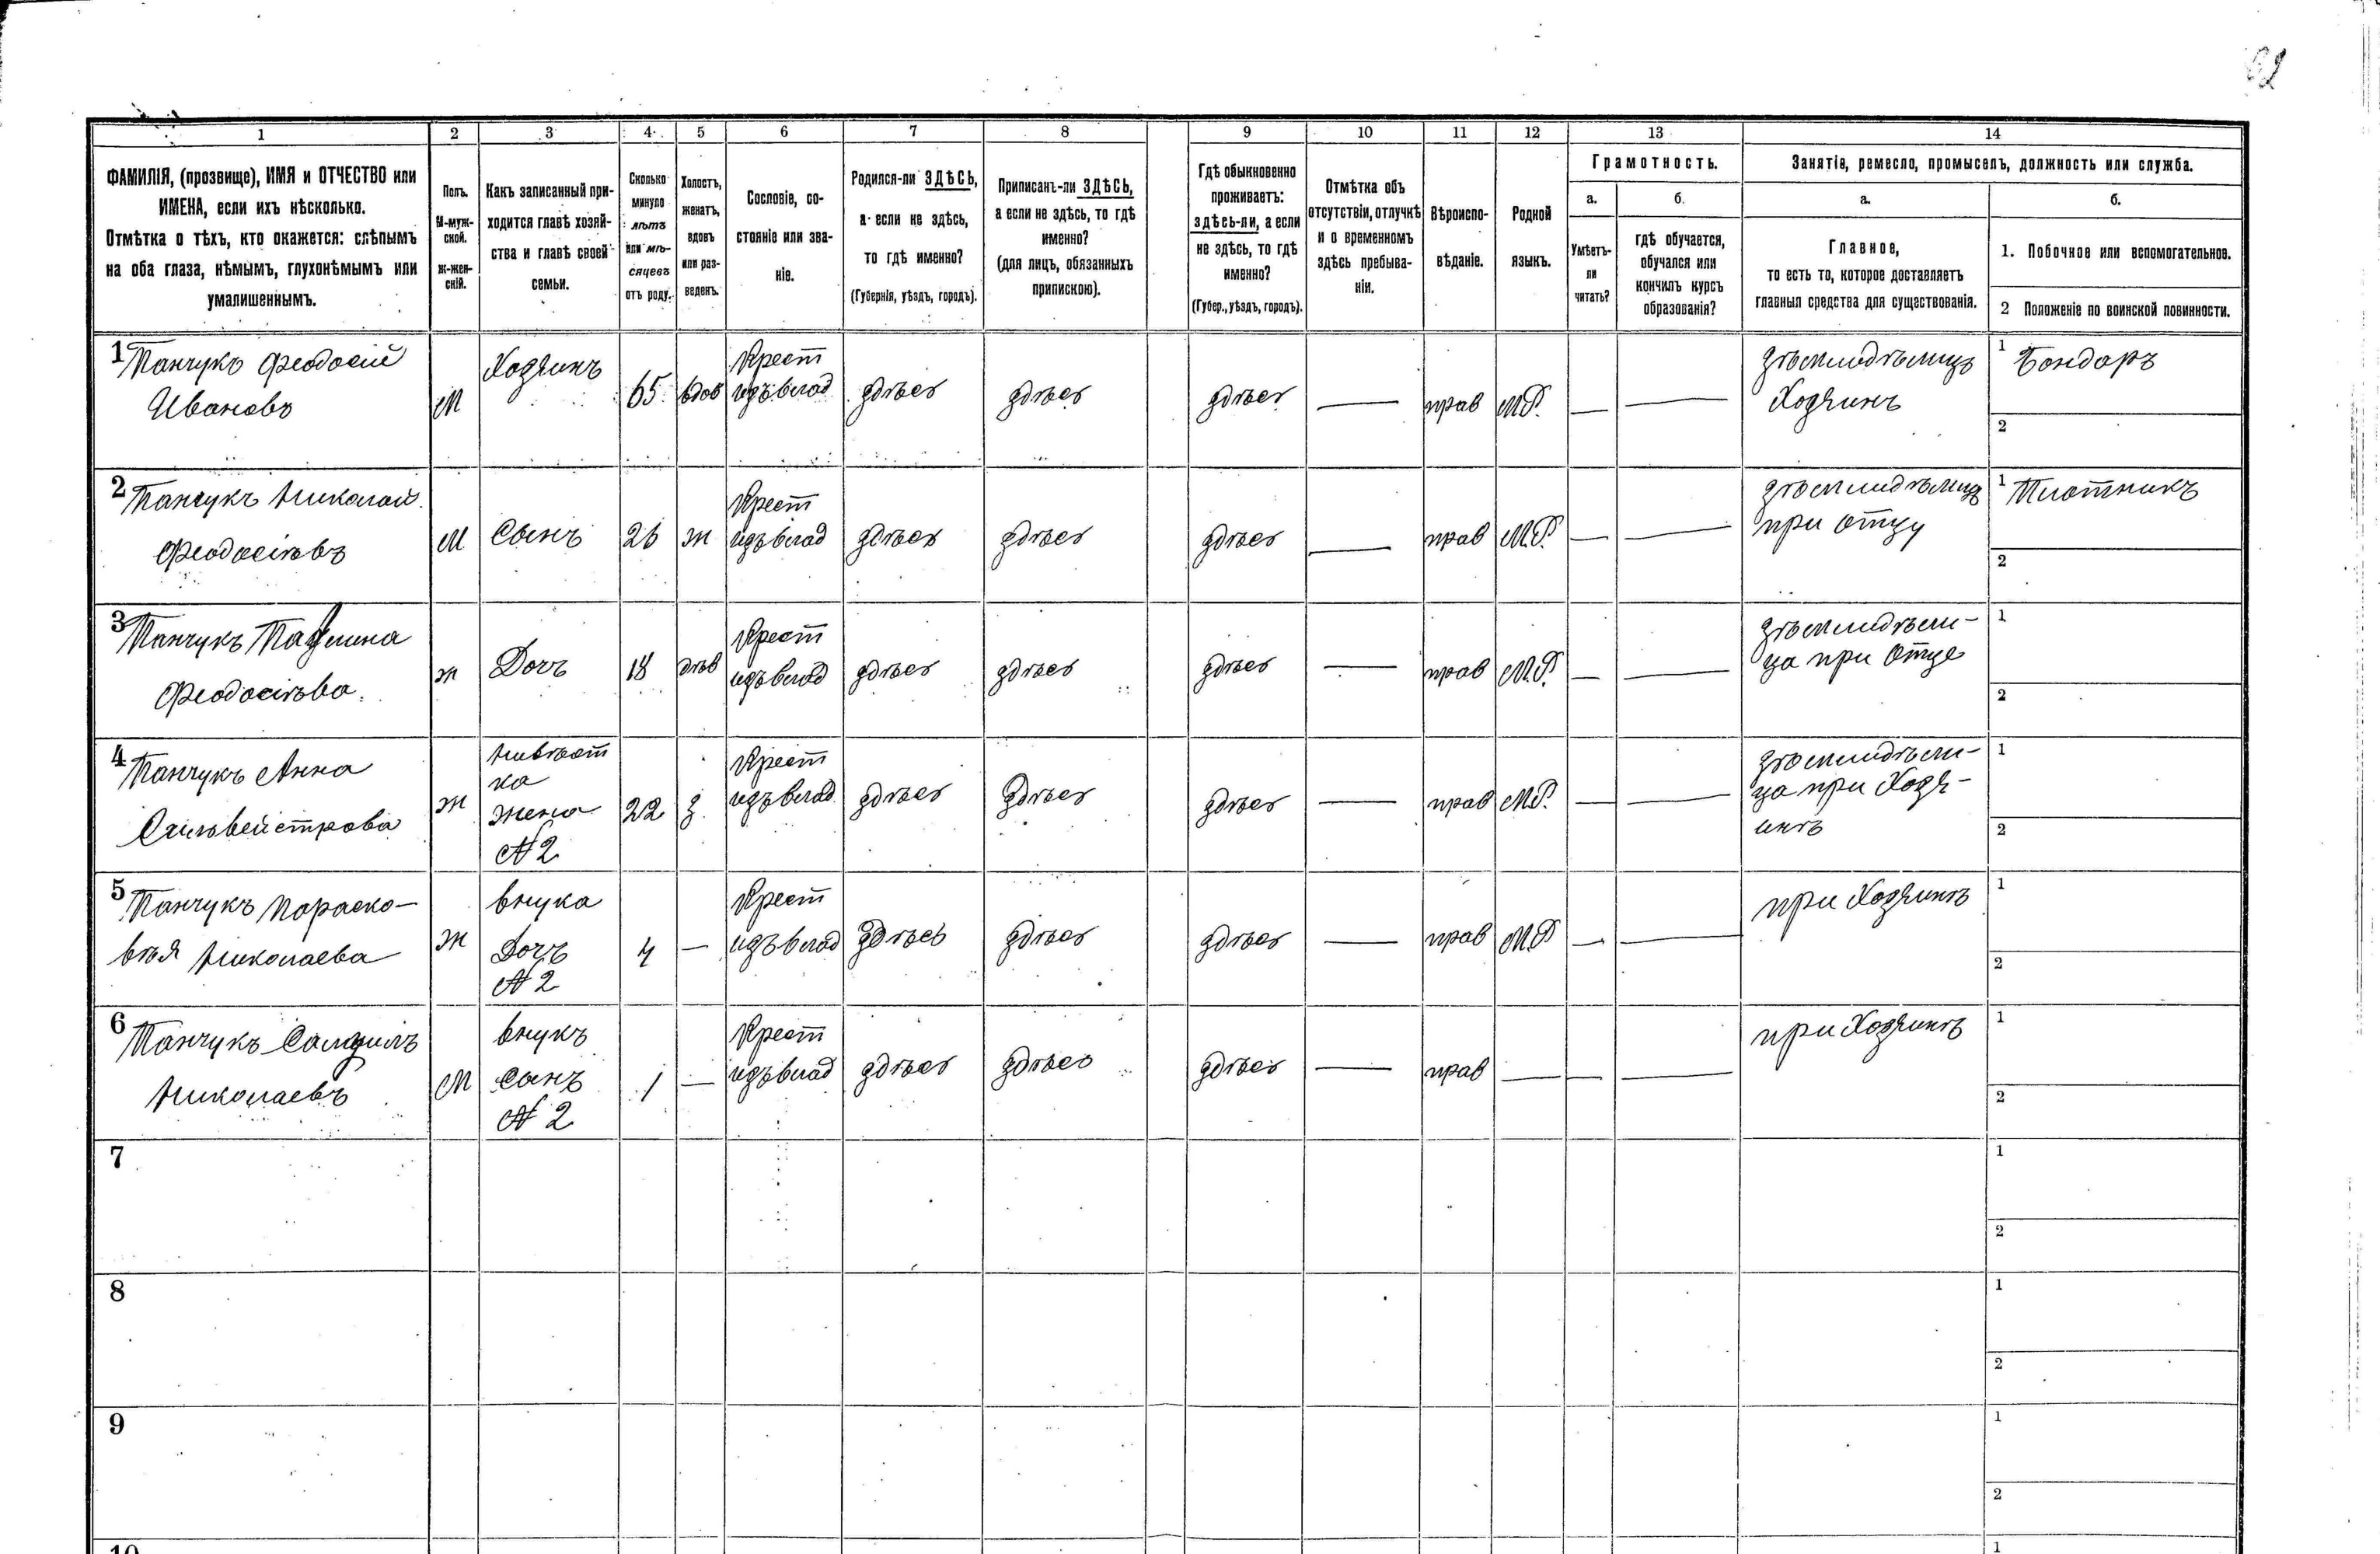 62
1 2 3 4 5 6 7 8 9 10 11 12 13 14
ФАМИЛІЯ, (прозвище), ИМЯ и ОТЧЕСТВО или
ИМЕНА, если ихъ нѣсколько.
Отмѣтка о тѣхъ, кто окажется: слѣпымъ
на оба глаза, нѣмымъ, глухонѣмымъ или
умалишеннымъ.
Полъ.
М-муж-
ской.
Ж-жен-
скій.
Какъ записанный при-
ходится главѣ хозяй-
ства и главѣ своей
семьи.
Сколько
минуло
лѣтъ
или мѣ-
сяцевъ
отъ роду.
Холостъ,
женатъ,
вдовъ
или раз-
веденъ.
Сословіе, со-
стояніе или зва-
ніе.
Родился-ли ЗДѢСЬ,
а если не здѣсь,
то гдѣ именно?
(Губернія, уѣздъ, городъ).
Приписанъ-ли ЗДѢСЬ,
а если не здѣсь, то гдѣ
именно?
(для лицъ, обязанныхъ
припискою).
Гдѣ обыкновенно
проживаетъ:
здѣсь-ли, а если
не здѣсь, то гдѣ
именно?
(Губер., уѣздъ, городъ).
Отмѣтка объ
отсутствіи, отлучкѣ
и о временномъ
здѣсь пребыва-
ніи.
Вѣроиспо-
вѣданіе.
Родной
языкъ.
Грамотность.
а.
Умѣетъ-
ли
читать?
б.
гдѣ обучается,
обучался или
кончилъ курсъ
образованія?
Занятіе, ремесло, промыселъ, должность или служба.
а.
Главное,
то есть то, которое доставляетъ
главныя средства для существованія.
б.
1. Побочное или вспомогательное.
2 Положеніе по воинской повинности.
1 Танчукъ Феодосій
Ивановъ
М
Хозяинъ
65 вдов
Крест
изъ влад
здѣсь здѣсь здѣсь — прав М.Р. — —
Зѣмлидѣлицъ
Хозяинъ
1 Бондаръ
2
2 Танчукъ Николай
Феодосіѣвъ
М Сынъ 26 ж
Крест
изъ влад
здѣсь здѣсь здѣсь — прав М.Р. — —
Зѣмлидѣлицъ
при отцу
1 Плотникъ
2
3 Танчукъ
Феодосіѣва
ж Дочъ 18 дѣв
Крест
изъ влад
здѣсь здѣсь здѣсь — прав М.Р. — —
Зѣмлидѣли-
ца при Отце
1
2
4 Танчукъ Анна
Сильвейстрова
ж
Нивѣст
ка
жена
№ 2
22 з.
Крест
изъ влад
здѣсь здѣсь здѣсь — прав М.Р. — —
Зѣмлидѣли-
ца при Хозя-
инѣ
1
2
5 Танчукъ Параско-
вѣя Николаева
ж
внука
Дочъ
№ 2
4 —
Крест
изъ влад
здѣсь здѣсь здѣсь — прав М.Р. — —
при Хозяинѣ
1
2
6 Танчукъ
Николаевъ
М
внукъ
Сынъ
№ 2
1 —
Крест
изъ влад
здѣсь здѣсь здѣсь — прав — — —
при Хозяинѣ
1
2
7
1
2
8
1
2
9
1
2
10
1